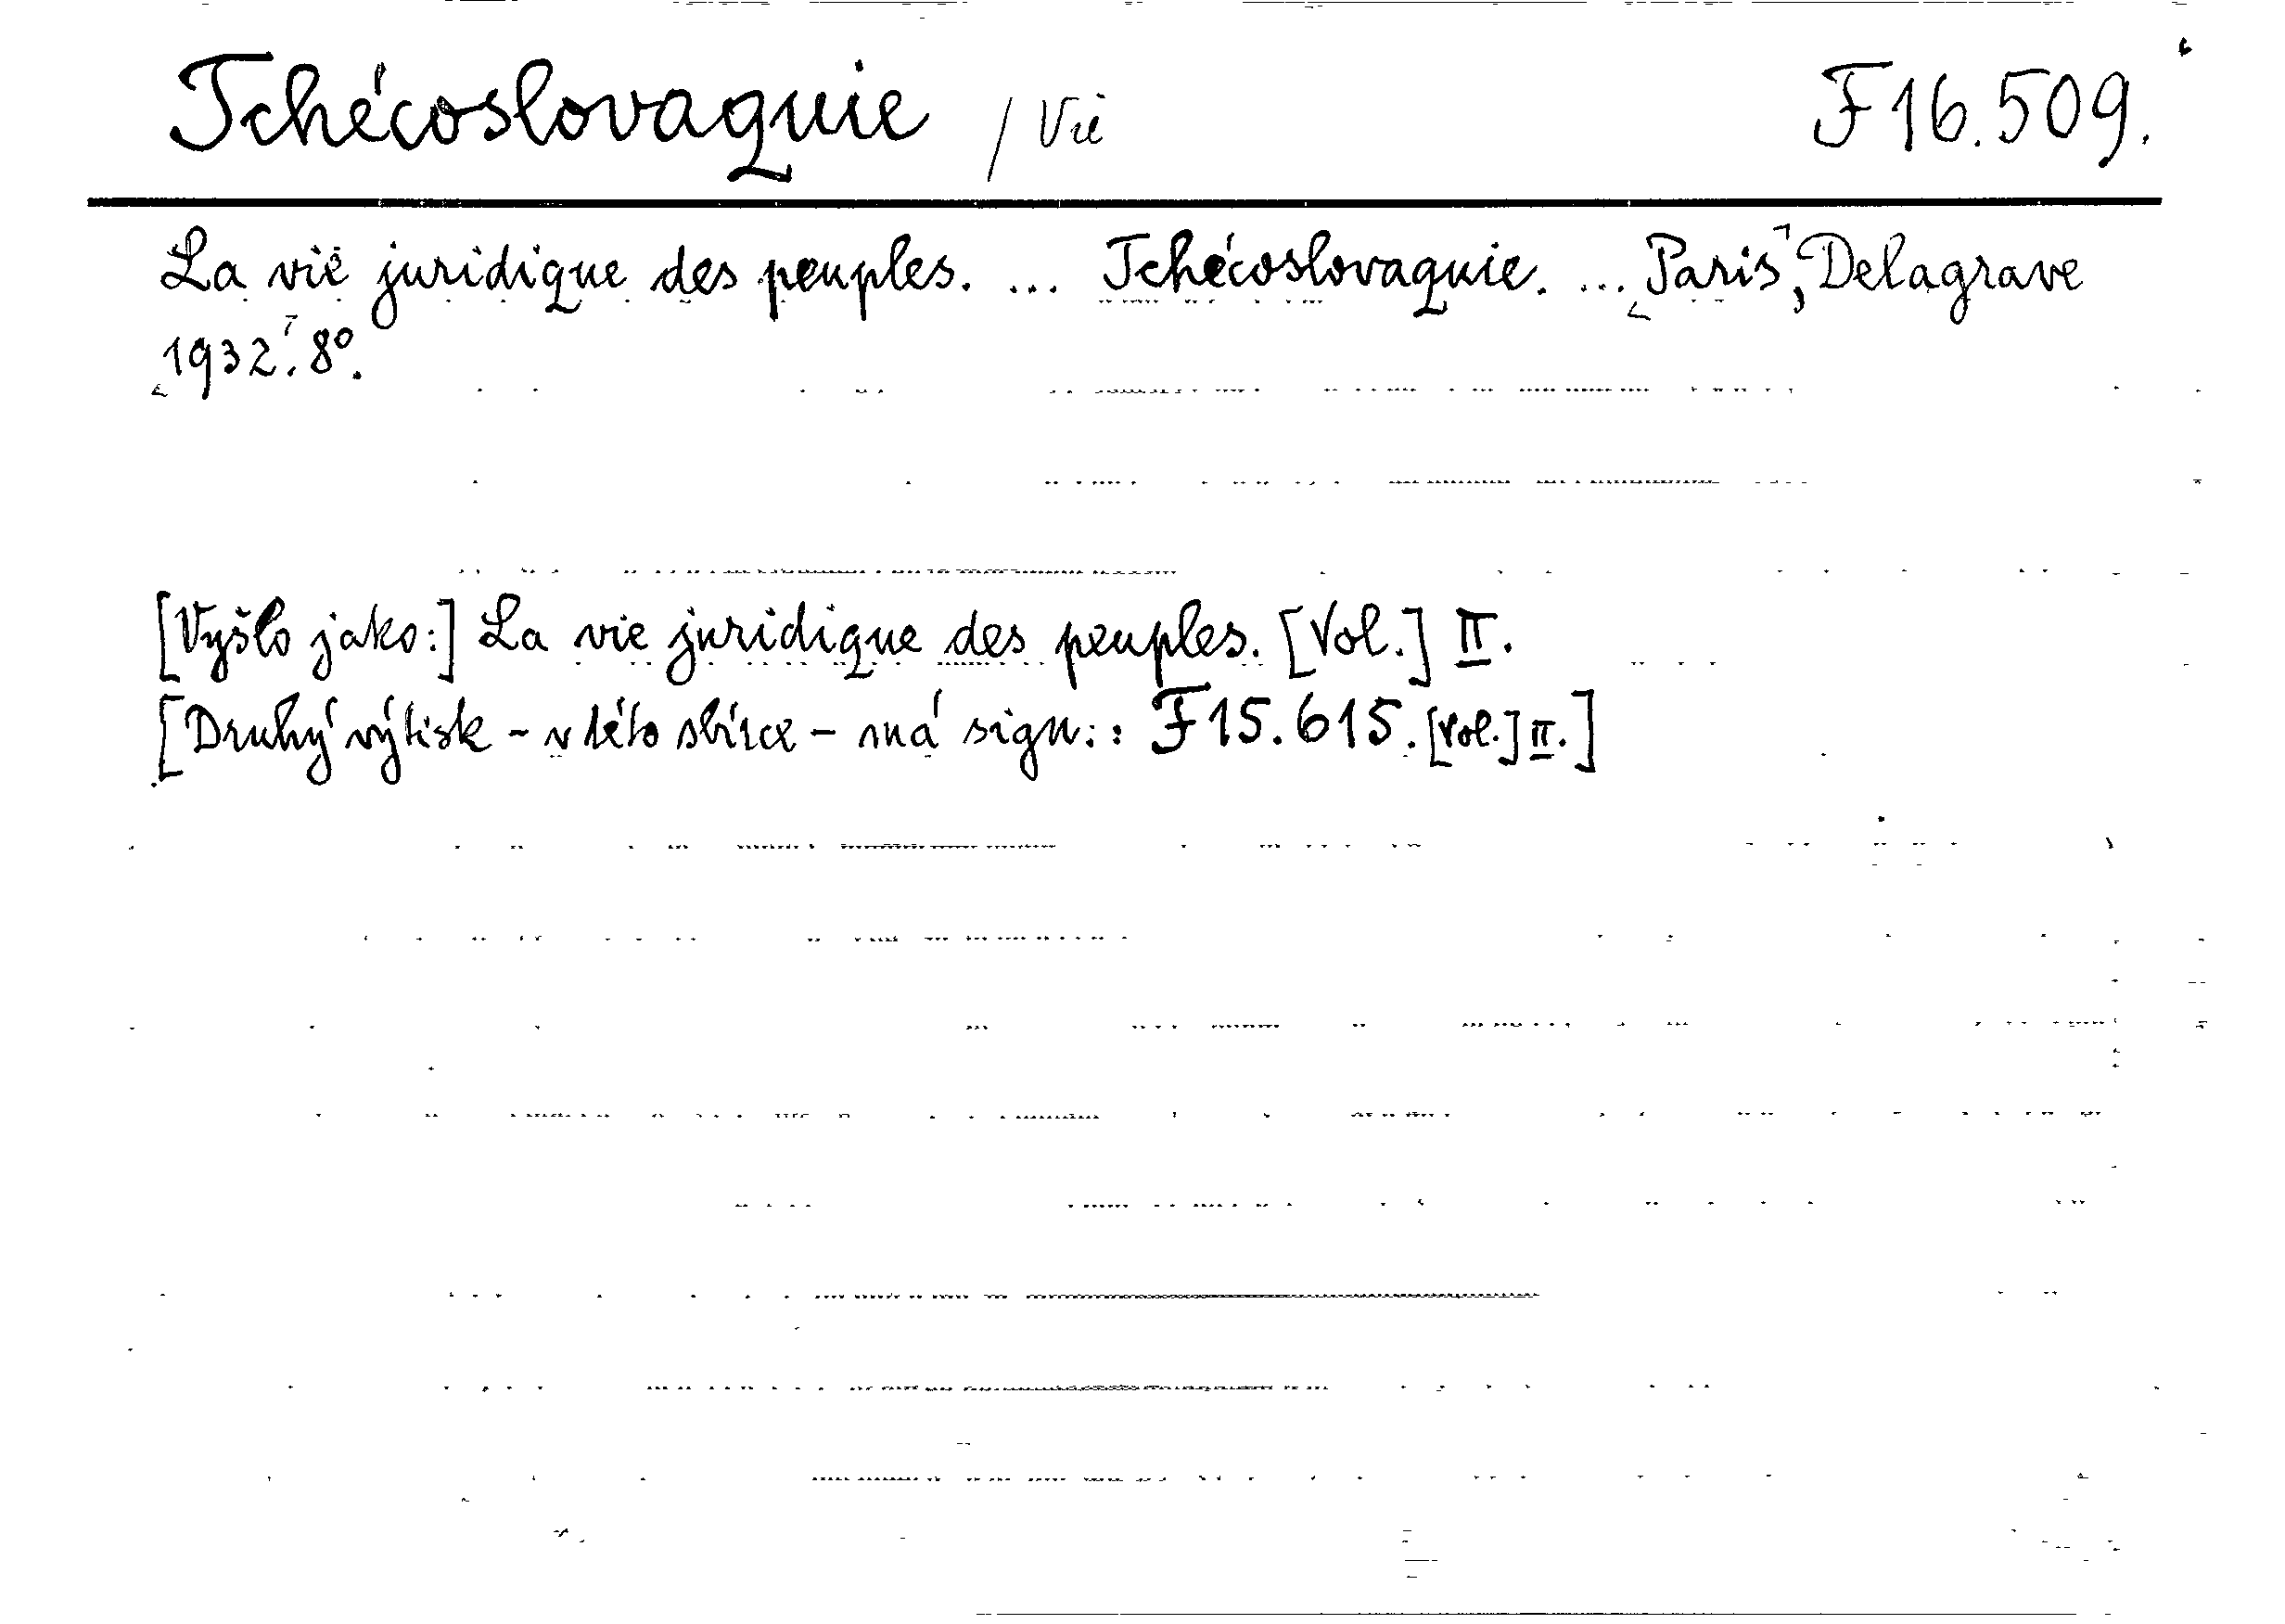 Tchécoslovaquie / Vie F 16.509.
La vie juridique des peuples. ... Tchécoslovaquie. ... Paris, Delagrave
1932. 8°.
[Vyšlo jako:] La vie juridique des peuples. [Vol.] II.
[Druhý výtisk - v této sbírce - má sign.: F 15.615. [Vol.] II.]